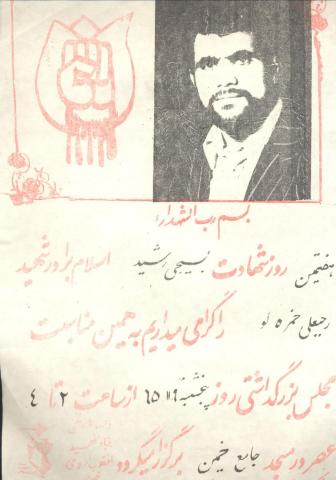 بسم رب الشهداء
هفتمین روز شهادت بسیجی رشید اسلام برادر شهید
رجبعلی حمزه لو را گرامی میداریم به همین مناسبت
مجلس بزرگداشتی روز پنجشنبه ۶۵ از ساعت ۲ تا ٤
عصر در مسجد جامع خمین برگزار میگردد